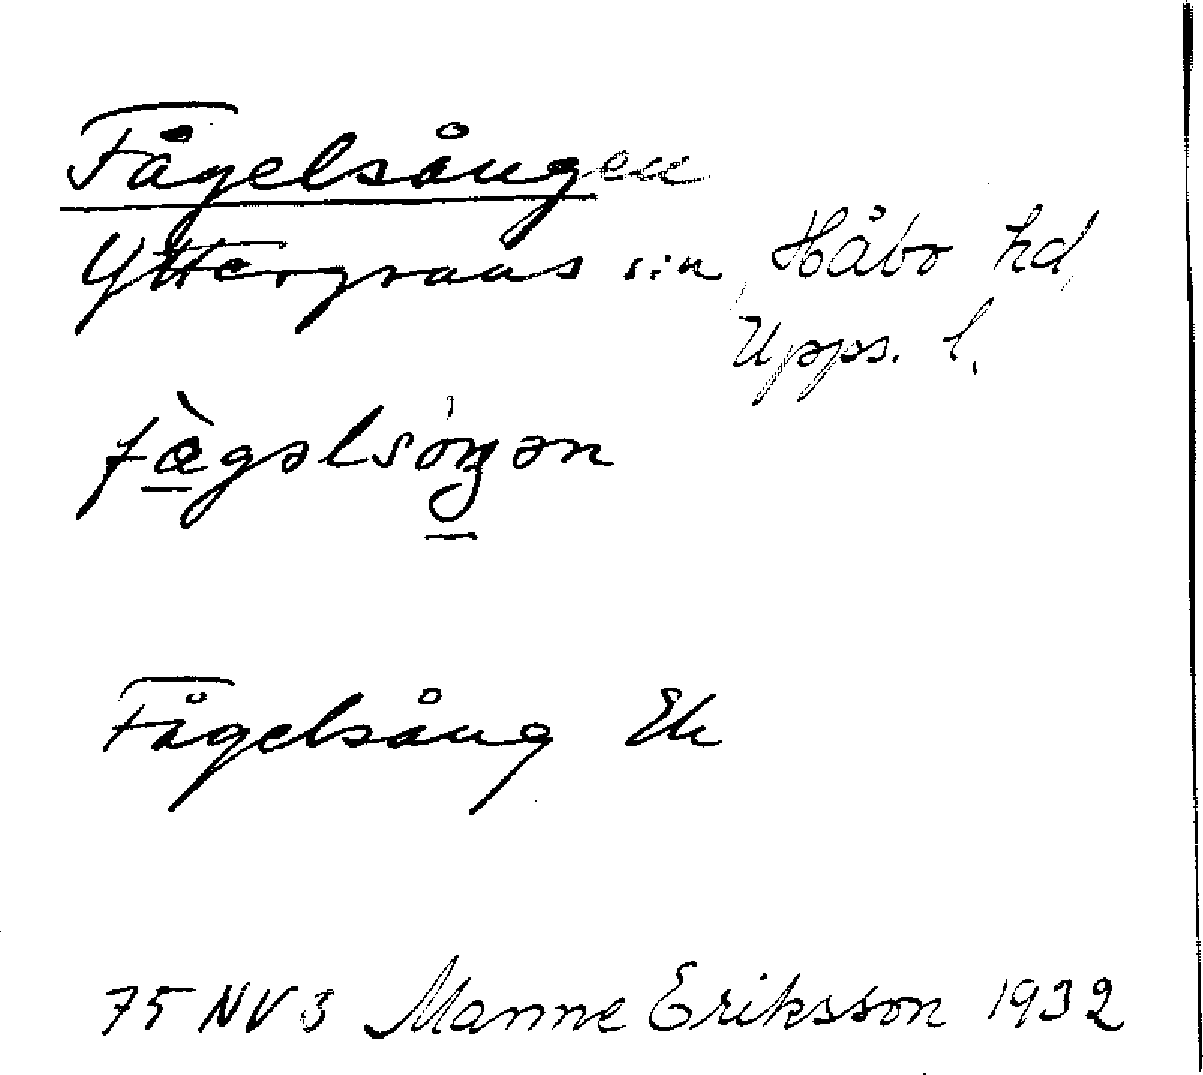 Fågelsången
Yttergrans sn, Håbo hd,
Upps. l.
fὰgəlsóŋən
Fågelsång Ek
75 NV 3 Manne Eriksson 1932